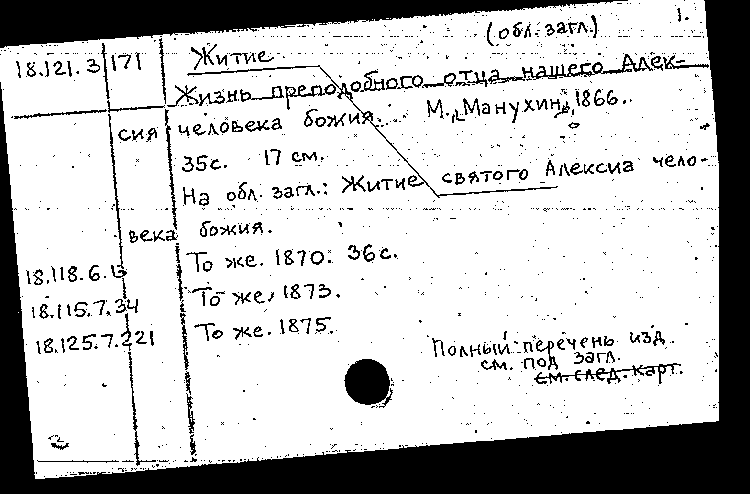 (обл. загл.) 1.
18.121.3 171 Житие
Жизнь преподобного отца нашего Алек-
сия человека божия. М., Манухин, 1866.
35с. 17 см.
На обл. загл.: Житие святого Алексиа чело-
века божия.
18.118.6.13 То же. 1870. 36с.
18.115.7.34 То же, 1873.
18.125.7.221 То же. 1875.
Полный перечень изд.
см. под загл.
см. след. карт.
2